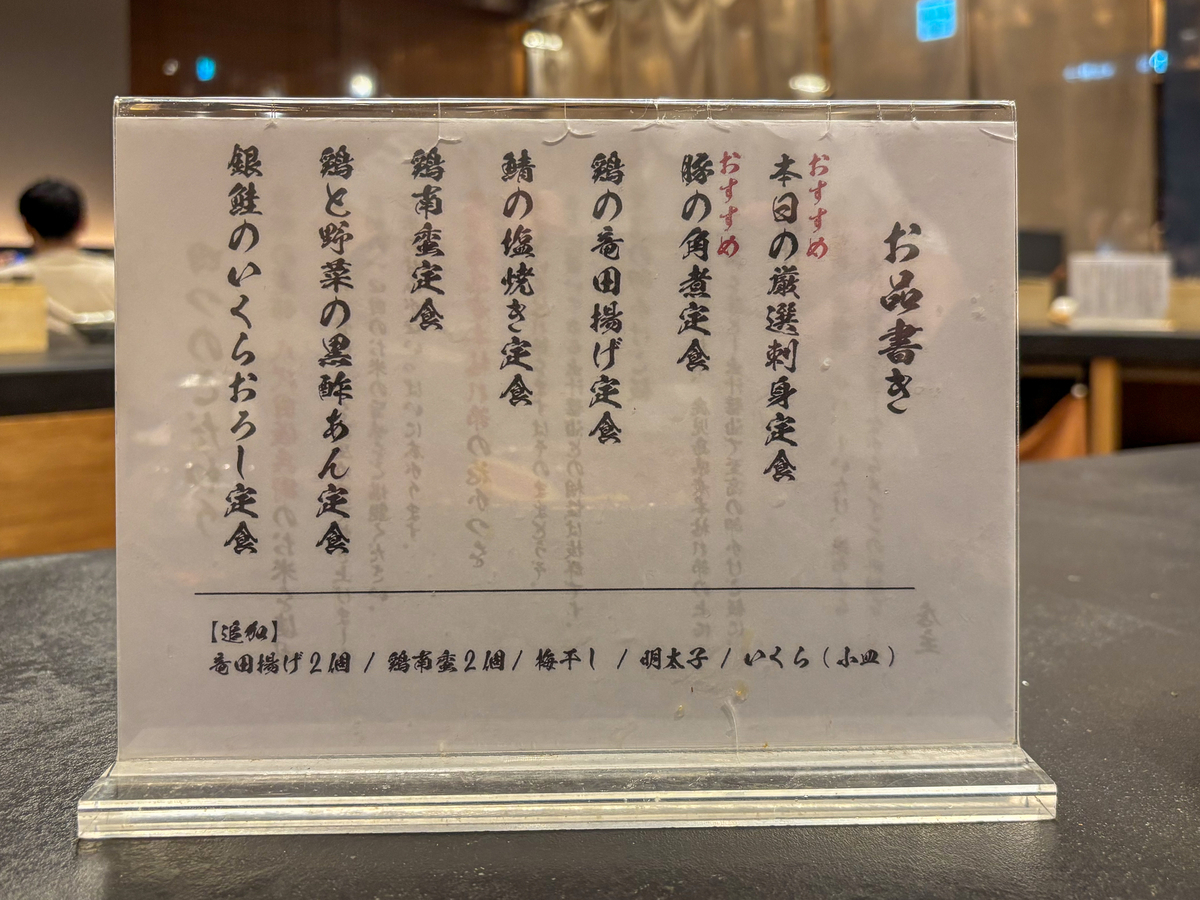 お品書き
おすすめ
本日の厳選刺身定食
おすすめ
豚の角煮定食
鶏の竜田揚げ定食
鯖の塩焼き定食
鶏南蛮定食
鶏と野菜の黒酢あん定食
銀鮭のいくらおろし定食
【追加】
竜田揚げ2個 / 鶏南蛮2個 / 梅干し / 明太子 / いくら(小皿)